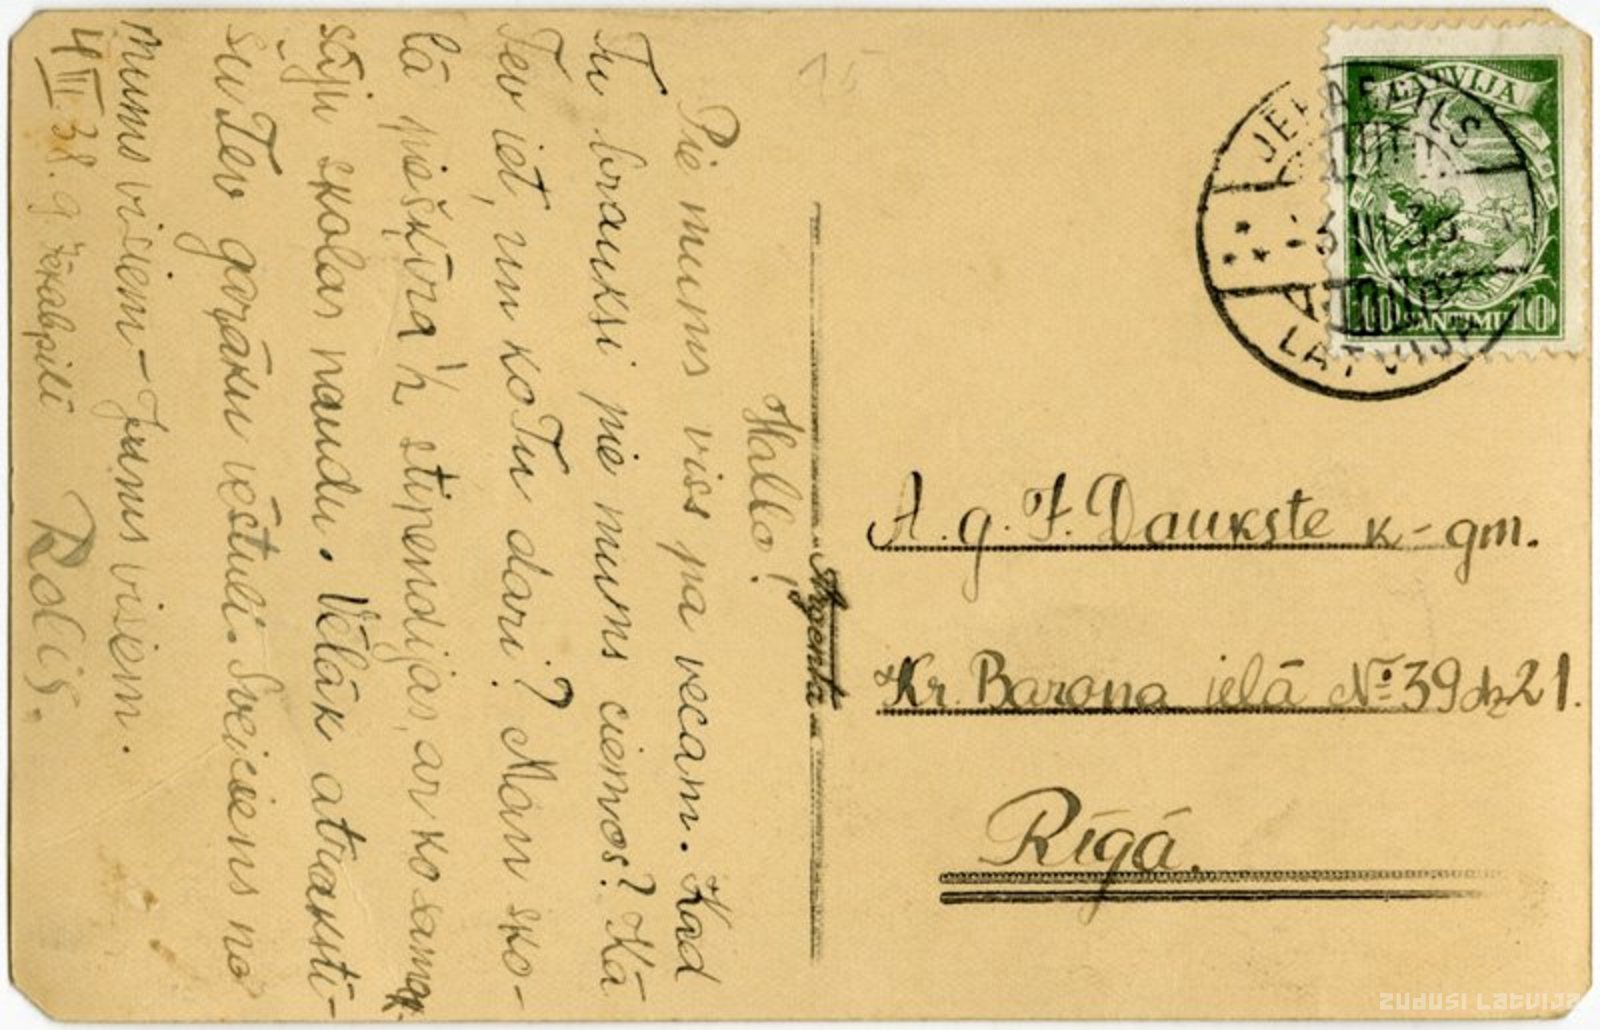 Hallo!
Pie mums viss pa vecam. Kad
Tu brauksi pie mums ciemos? Kā
Tev iet, un ko Tu dari? Man sko-
lā piešķīra ½ stipendijas, ar ko samak-
sāju skolas naudu. Vēlāk atrakstī-
šu Tev garāku vēstuli. Sveiciens no
mums visiem - Jums visiem.
4 III 38. g. Jēkabpilī Rolis.
15
"Argenta"
A. g. F. Daukste k-gm.
Kr. Barona ielā № 39 dz 21.
Rīgā.
LATVIJA
10 SANTIMU 10
JĒKABPILS
LATVIJA
ZUDUSI LATVIJA